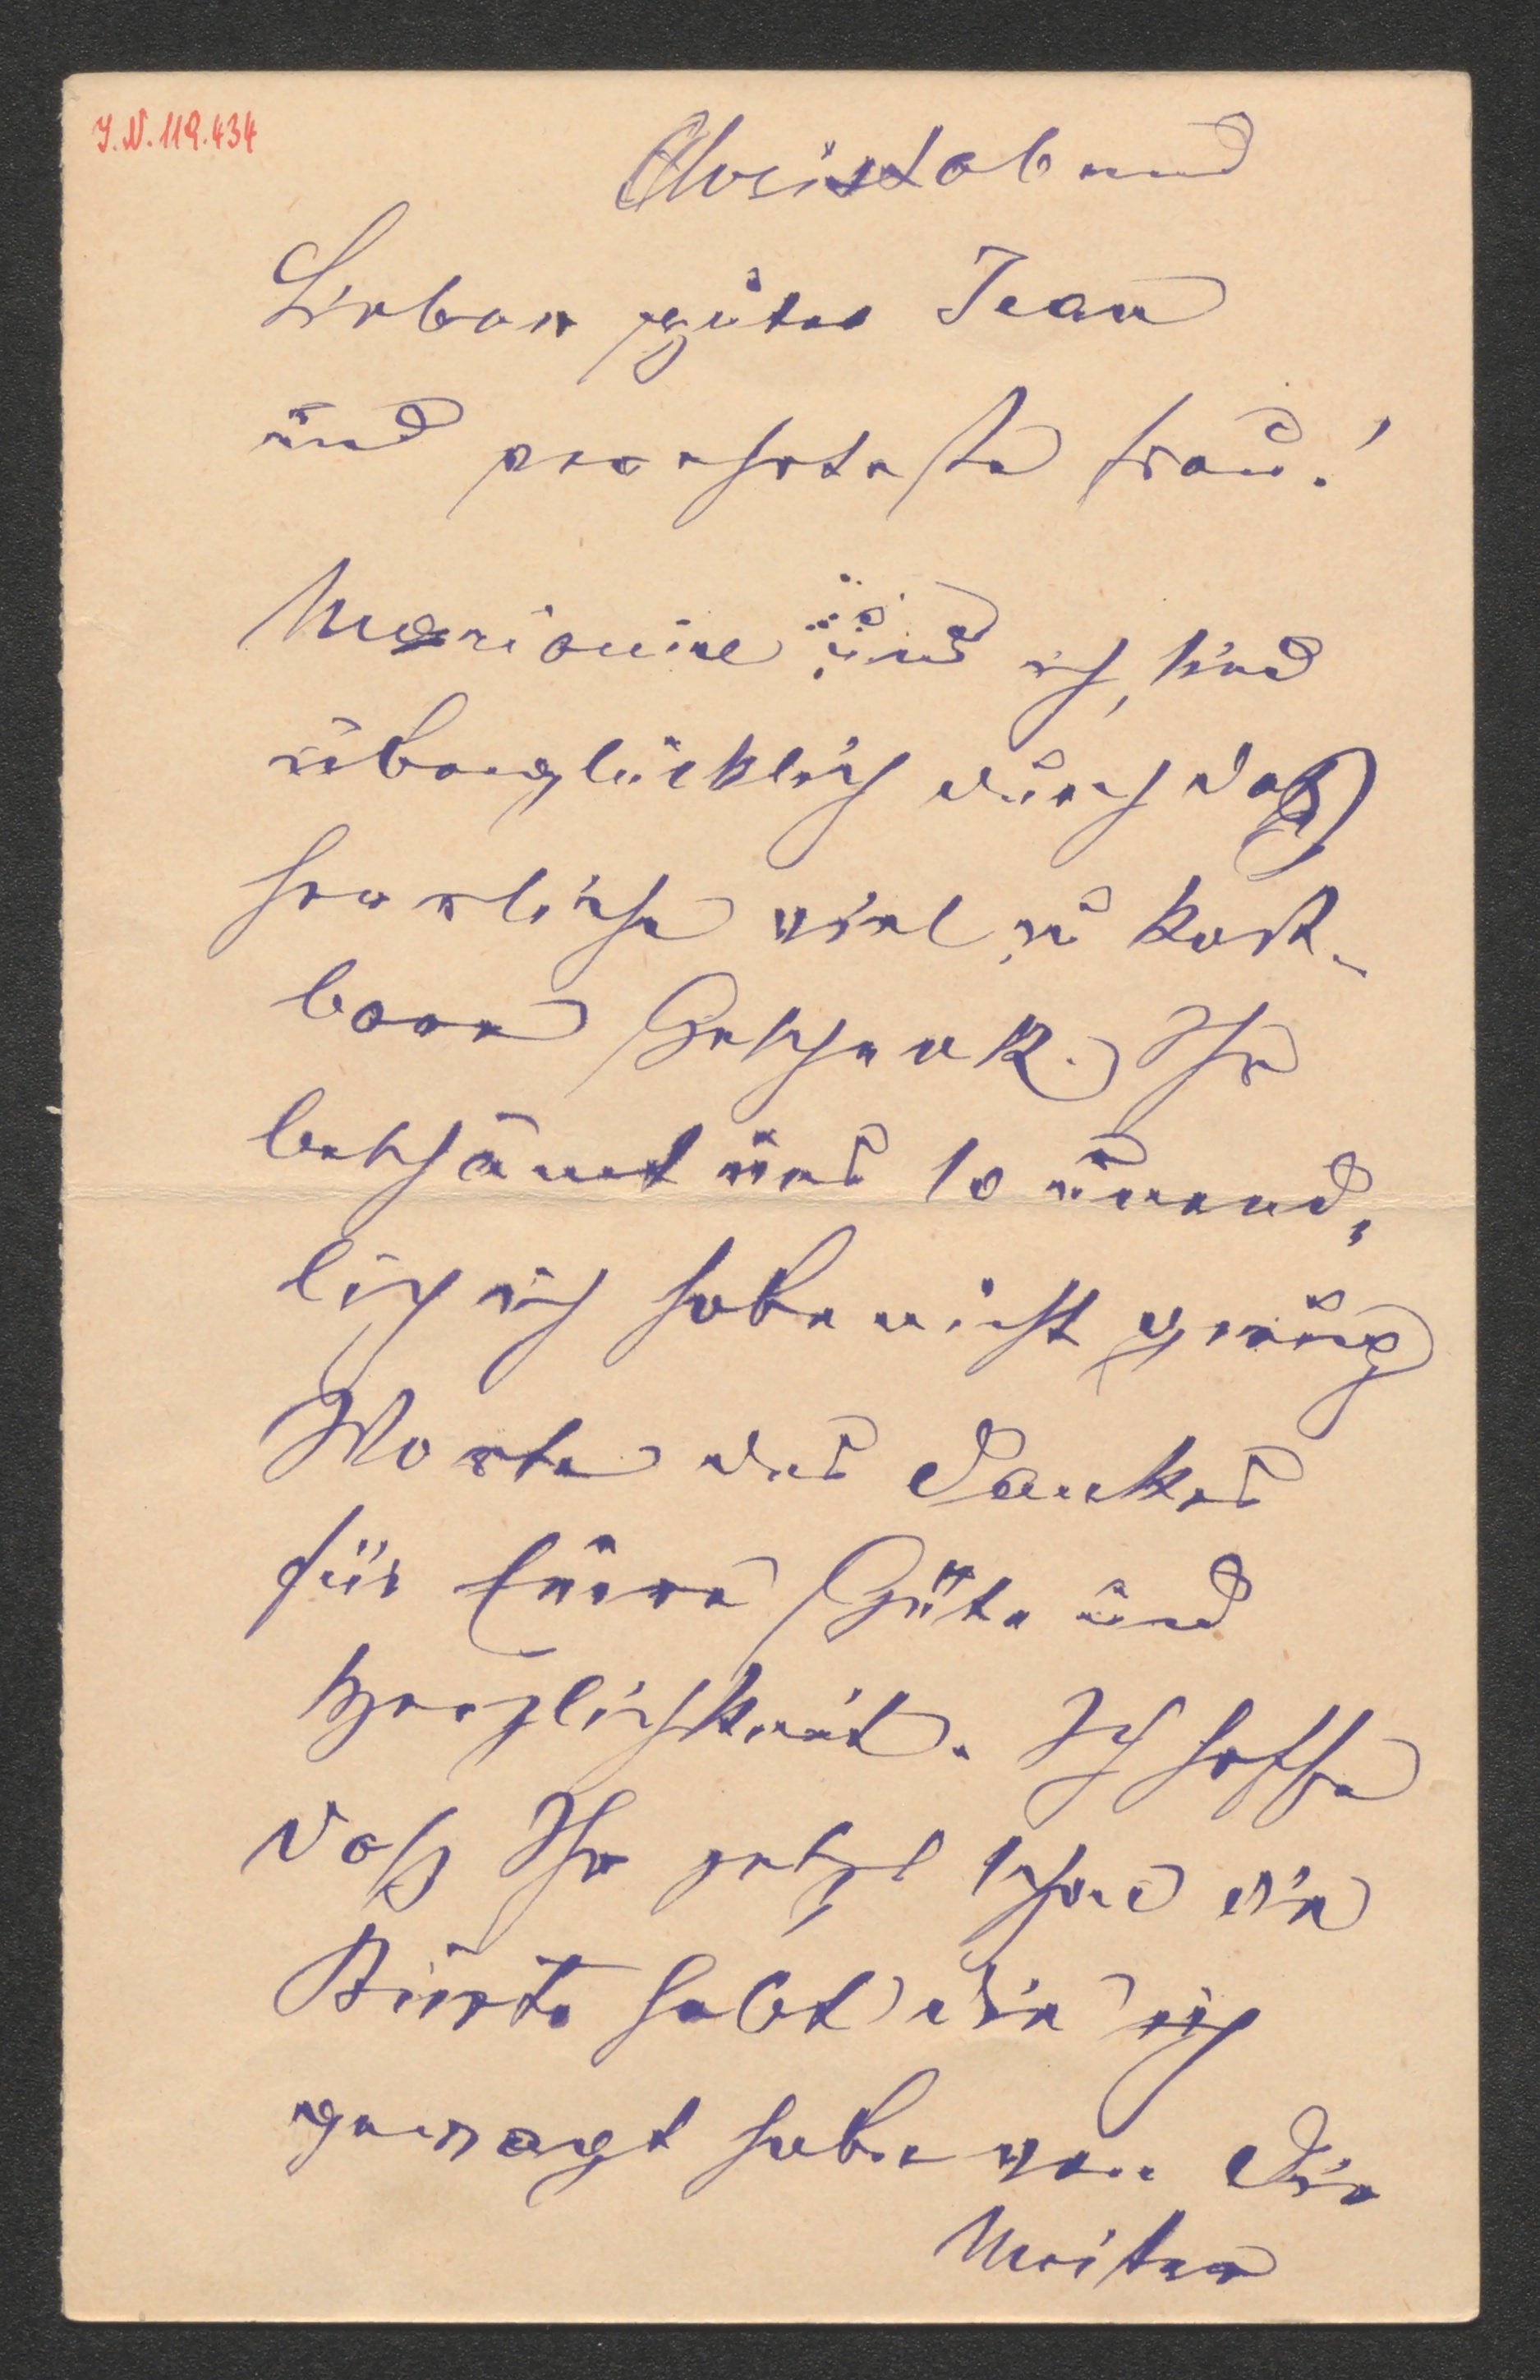 J.N. 119.434
Christabend
Lieber guter Jean
und verehrteste Frau!
und ich sind
überglücklich durch das
herrliche viel zu kost-
bare Geschenk. Ihr
beschämt uns so unend,
lich ich habe nicht genug
Worte des Dankes
für Euere Güte und
Herzlichkeit. Ich hoffe
daß Ihr jetzt schon die
habt die ich
gewagt habe von